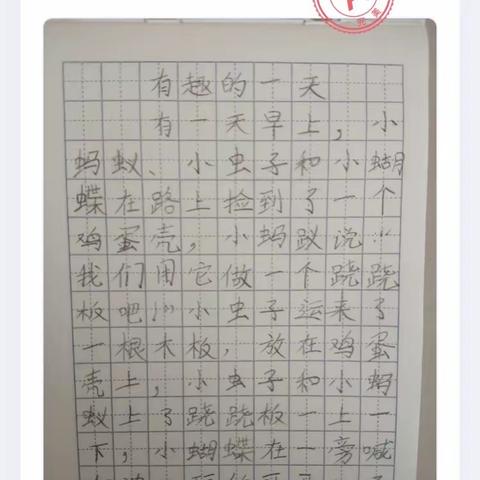 有趣的一天
有一天早上，小
蚂蚁、小虫子和小蝴
蝶在路上捡到了一个
鸡蛋壳，小蚂蚁说：“
我们用它做一个跷跷
板吧！”小虫子运来了
一根木板，放在鸡蛋
壳上，小虫子和小蚂
蚁上了跷跷板一上一
下，小蝴蝶在一旁喊